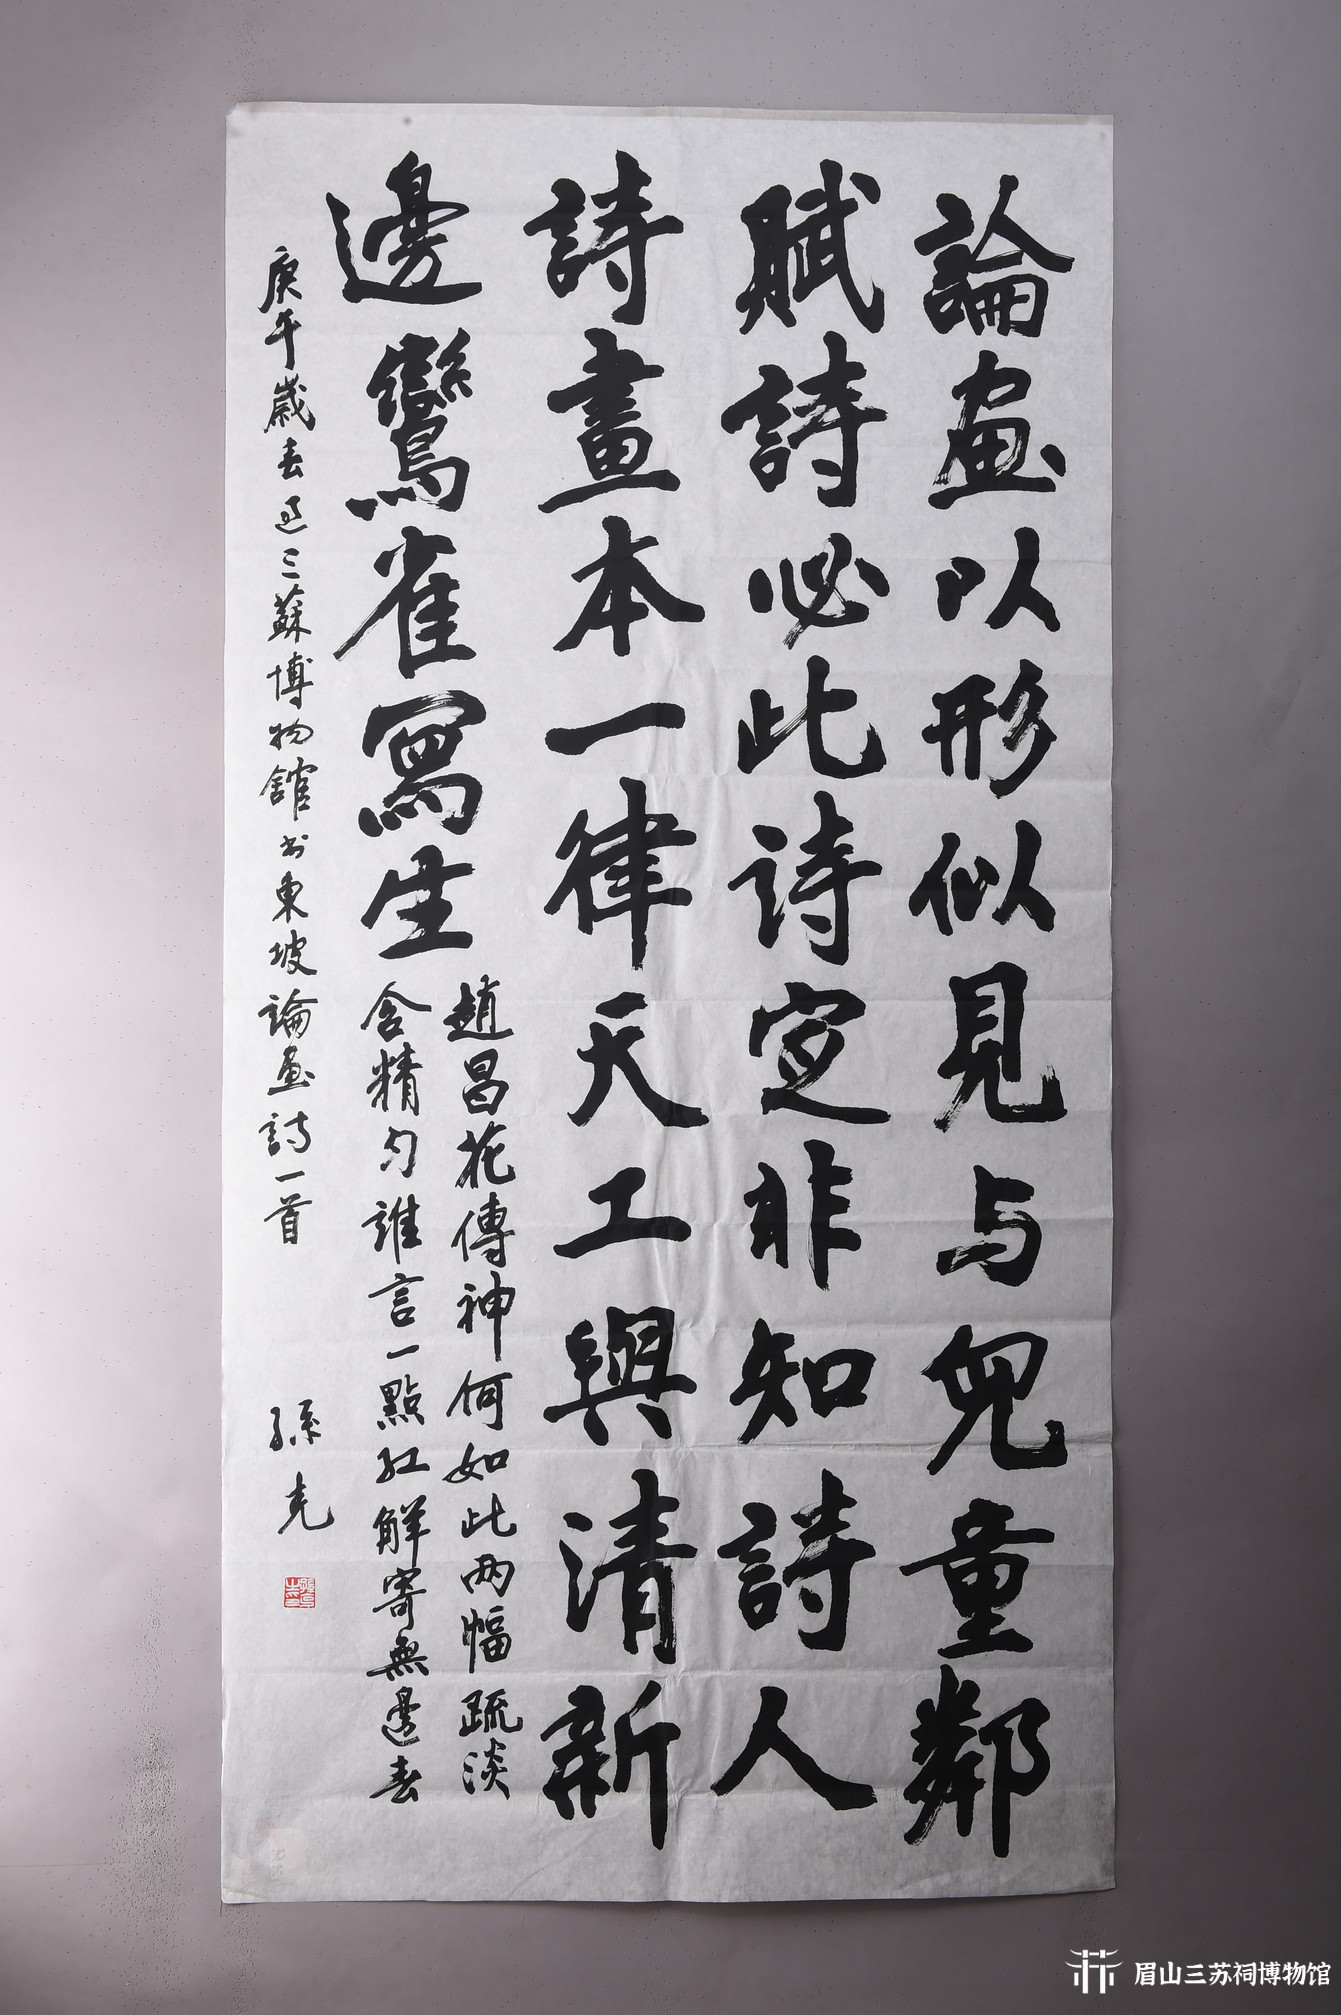 論画以形似見与兒童鄰
賦詩必此詩定非知詩人
詩畫本一律天工與清新
邊鸞雀寫生
趙昌花傳神何如此两幅疏淡
含精匀誰言一點紅解寄無邊春
庚午歲春过三蘇博物館书東坡論画詩一首
孫克
眉山三苏祠博物馆